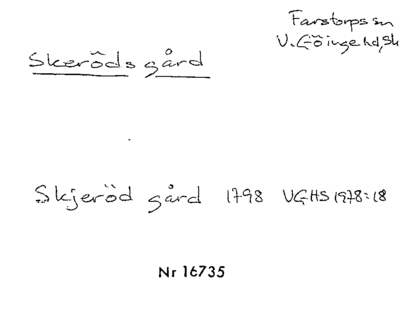 Farstorps sn
V. Göinge hd, Sk
Skeröds gård
Skjeröd gård 1798 VGHS 1978:18
Nr 16735